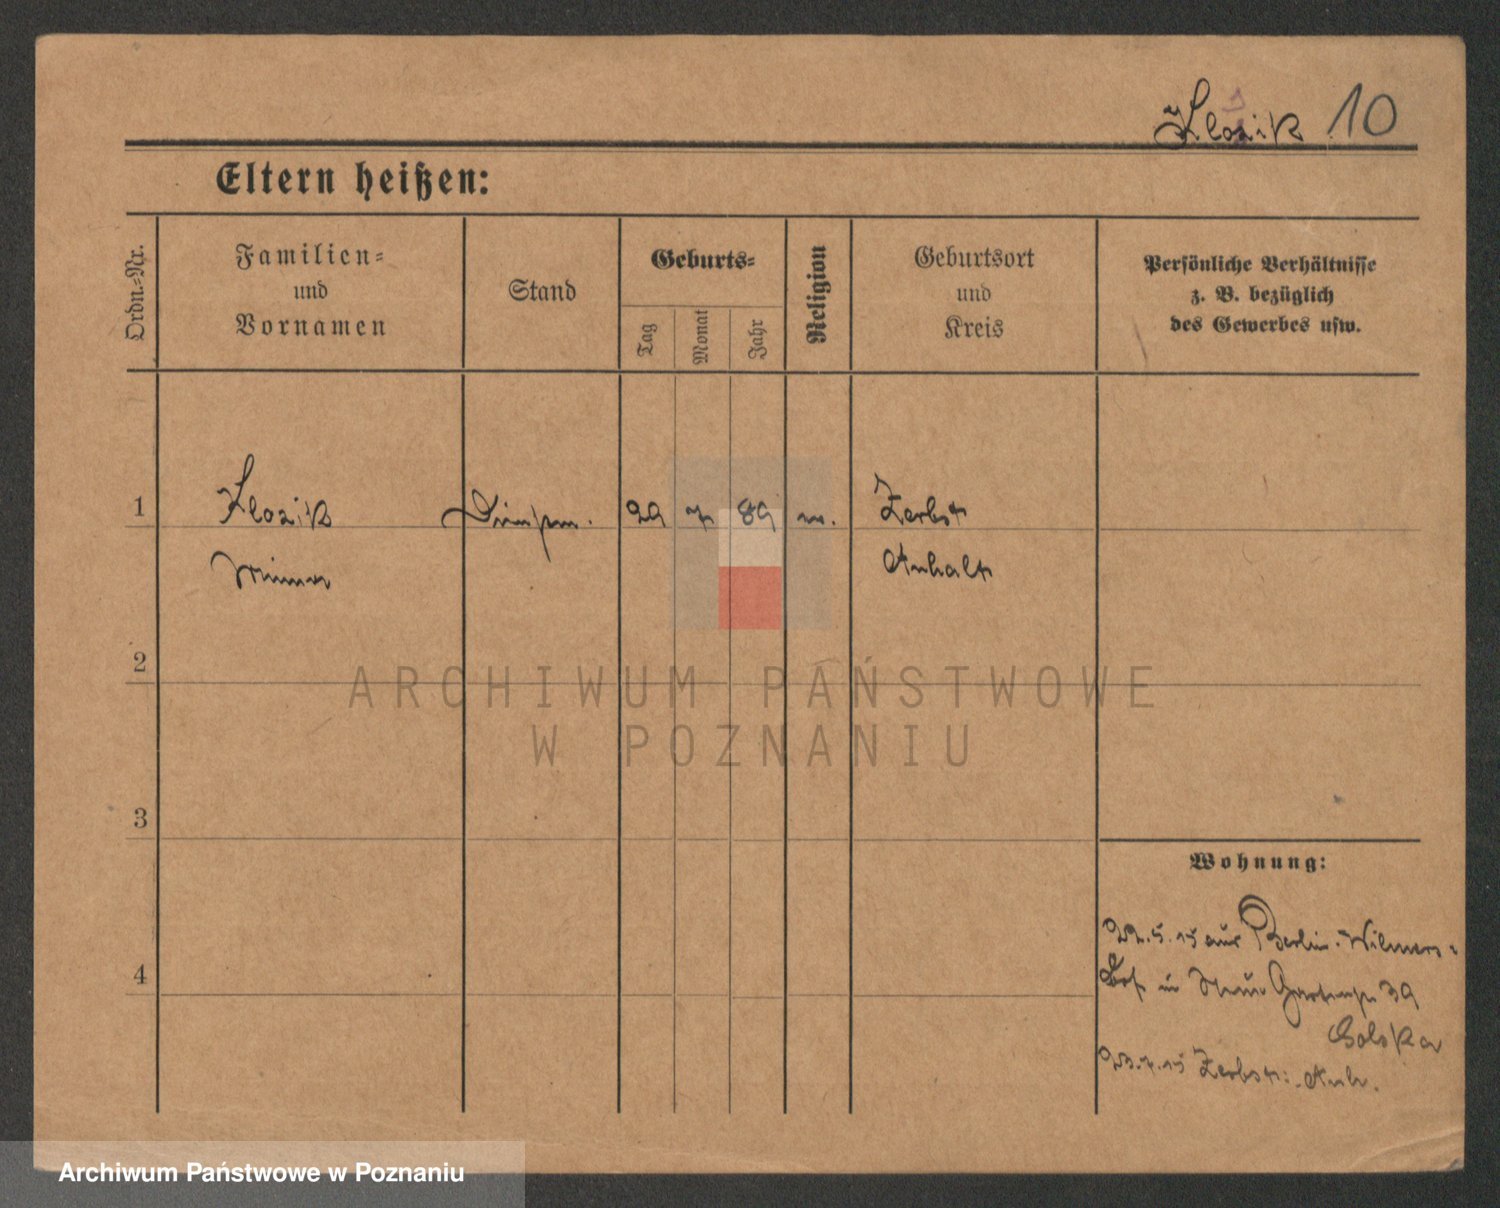 Klozik 10
Eltern heißen:
Ordn.-Nr.
Familien-
und
Vornamen
Stand
Geburts-
Tag
Monat
Jahr
Religion
Geburtsort
und
Kreis
Persönliche Verhältnisse
z. B. bezüglich
des Gewerbes usw.
1 Klozik 29 7 89 Zerbst
Minna Anhalt
2
3
4
ARCHIWUM PAŃSTWOWE
W POZNANIU
Wohnung:
22.5.15 aus Berlin-Wilmers-
dorf in Gartenstr 39
23.7.15 Zerbst i. Anh.
Archiwum Państwowe w Poznaniu